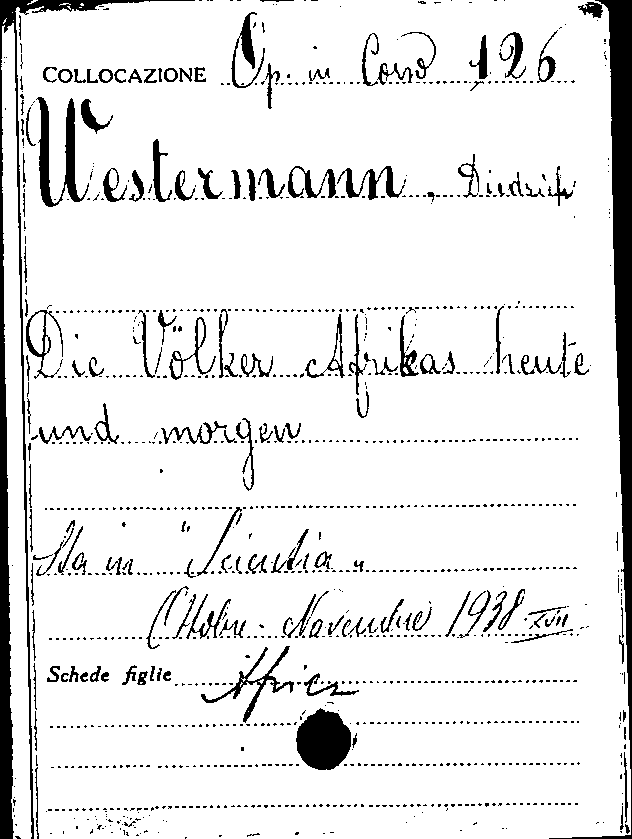 COLLOCAZIONE Op. in Corso 126
Westermann, Diedrich
Die Völker Afrikas heute
und morgen
Sta in "Scientia"
Ottobre - Novembre 1938 XVII
Schede figlie Africa